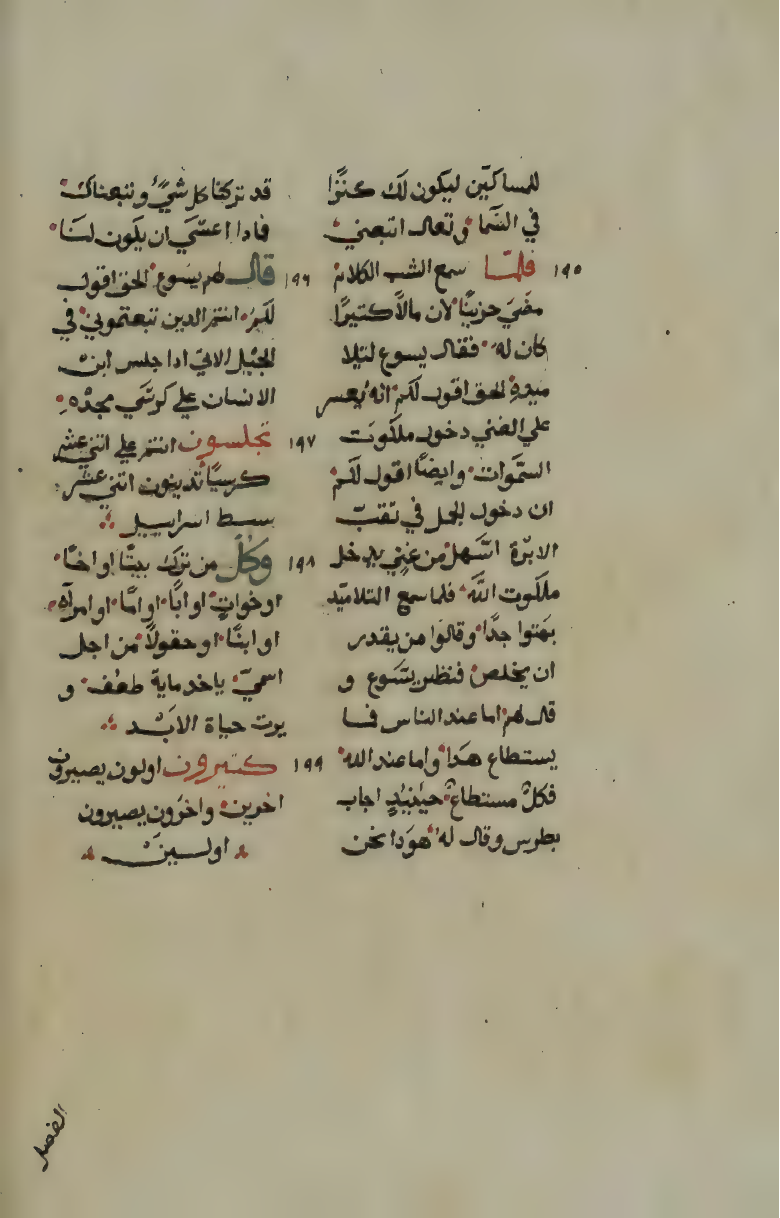 للمساكين ليكون لك كنزا
في السما وتعال اتبعني
١٩٥ فلما سمع الشب الكلام
مضي حزينا لان مالا كتيرا
كان له فقال يسوع لتلا
ميده الحق اقول لكم انه يعسر
علي الغني دخول ملكوت
السموات وايضا اقول لكم
ان دخول الجمل في تقب
الابرة اسهل من غني يدخل
ملكوت الله فلما سمع التلاميد
بهتوا جدا وقالوا من يقدر
ان يخلص فنظر يسوع و
قال لهم اما عند الناس فما
يستطاع هدا واما عند الله
فكل مستطاع حينيد اجاب
بطرس وقال له هودا نحن
قد تركنا كل شي وتبعناك
فمادا اعسي ان يكون لنا
١٩٦ قال لهم يسوع الحق اقول
لكم انتم الدين تبعتموني في
الجيل الاتي ادا جلس ابن
الانسان علي كرسي مجده
١٩٧ تجلسون انتم علي اتني عشر
كرسيا تدينون اتني عشر
سبط اسراييل
١٩٨ وكل من ترك بيتا او اخا
او خوات او ابا او اما او امراه
او ابنا او حقولا من اجل
اسمي ياخد ماية ضعف و
يرت حياة الابد
١٩٩ كتيرون اولون يصيرون
اخرين واخرون يصيرون
اولين
الفصل